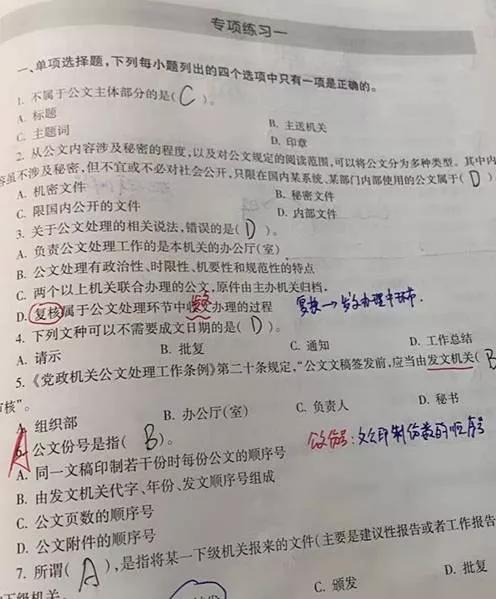 专项练习一
一、单项选择题,下列每小题列出的四个选项中只有一项是正确的。
1. 不属于公文主体部分的是( C )。
A. 标题 B. 主送机关
C. 主题词 D. 印章
2. 从公文内容涉及秘密的程度,以及对公文规定的阅读范围,可以将公文分为多种类型。其中内
容虽不涉及秘密,但不宜或不必对社会公开,只限在国内某系统、某部门内部使用的公文属于( D )
A. 机密文件 B. 秘密文件
C. 限国内公开的文件 D. 内部文件
3. 关于公文处理的相关说法,错误的是( D )。
A. 负责公文处理工作的是本机关的办公厅(室)
B. 公文处理有政治性、时限性、机要性和规范性的特点
C. 两个以上机关联合办理的公文,原件由主办机关归档。
D. 复核属于公文处理环节中收文办理的过程 复核→发文办理中环节.
4. 下列文种可以不需要成文日期的是( D )。
A. 请示 B. 批复 C. 通知 D. 工作总结
5. 《党政机关公文处理工作条例》第二十条规定,“公文文稿签发前,应当由发文机关( B
审核”。
A. 组织部 B. 办公厅(室) C. 负责人 D. 秘书
6. 公文份号是指( B )。 公文份号:文公印制份数的顺序号
A. 同一文稿印制若干份时每份公文的顺序号
B. 由发文机关代字、年份、发文顺序号组成
C. 公文页数的顺序号
D. 公文附件的顺序号
7. 所谓( A ),是指将某一下级机关报来的文件(主要是建议性报告或者工作报告
下级机关
C. 颁发 D. 批复